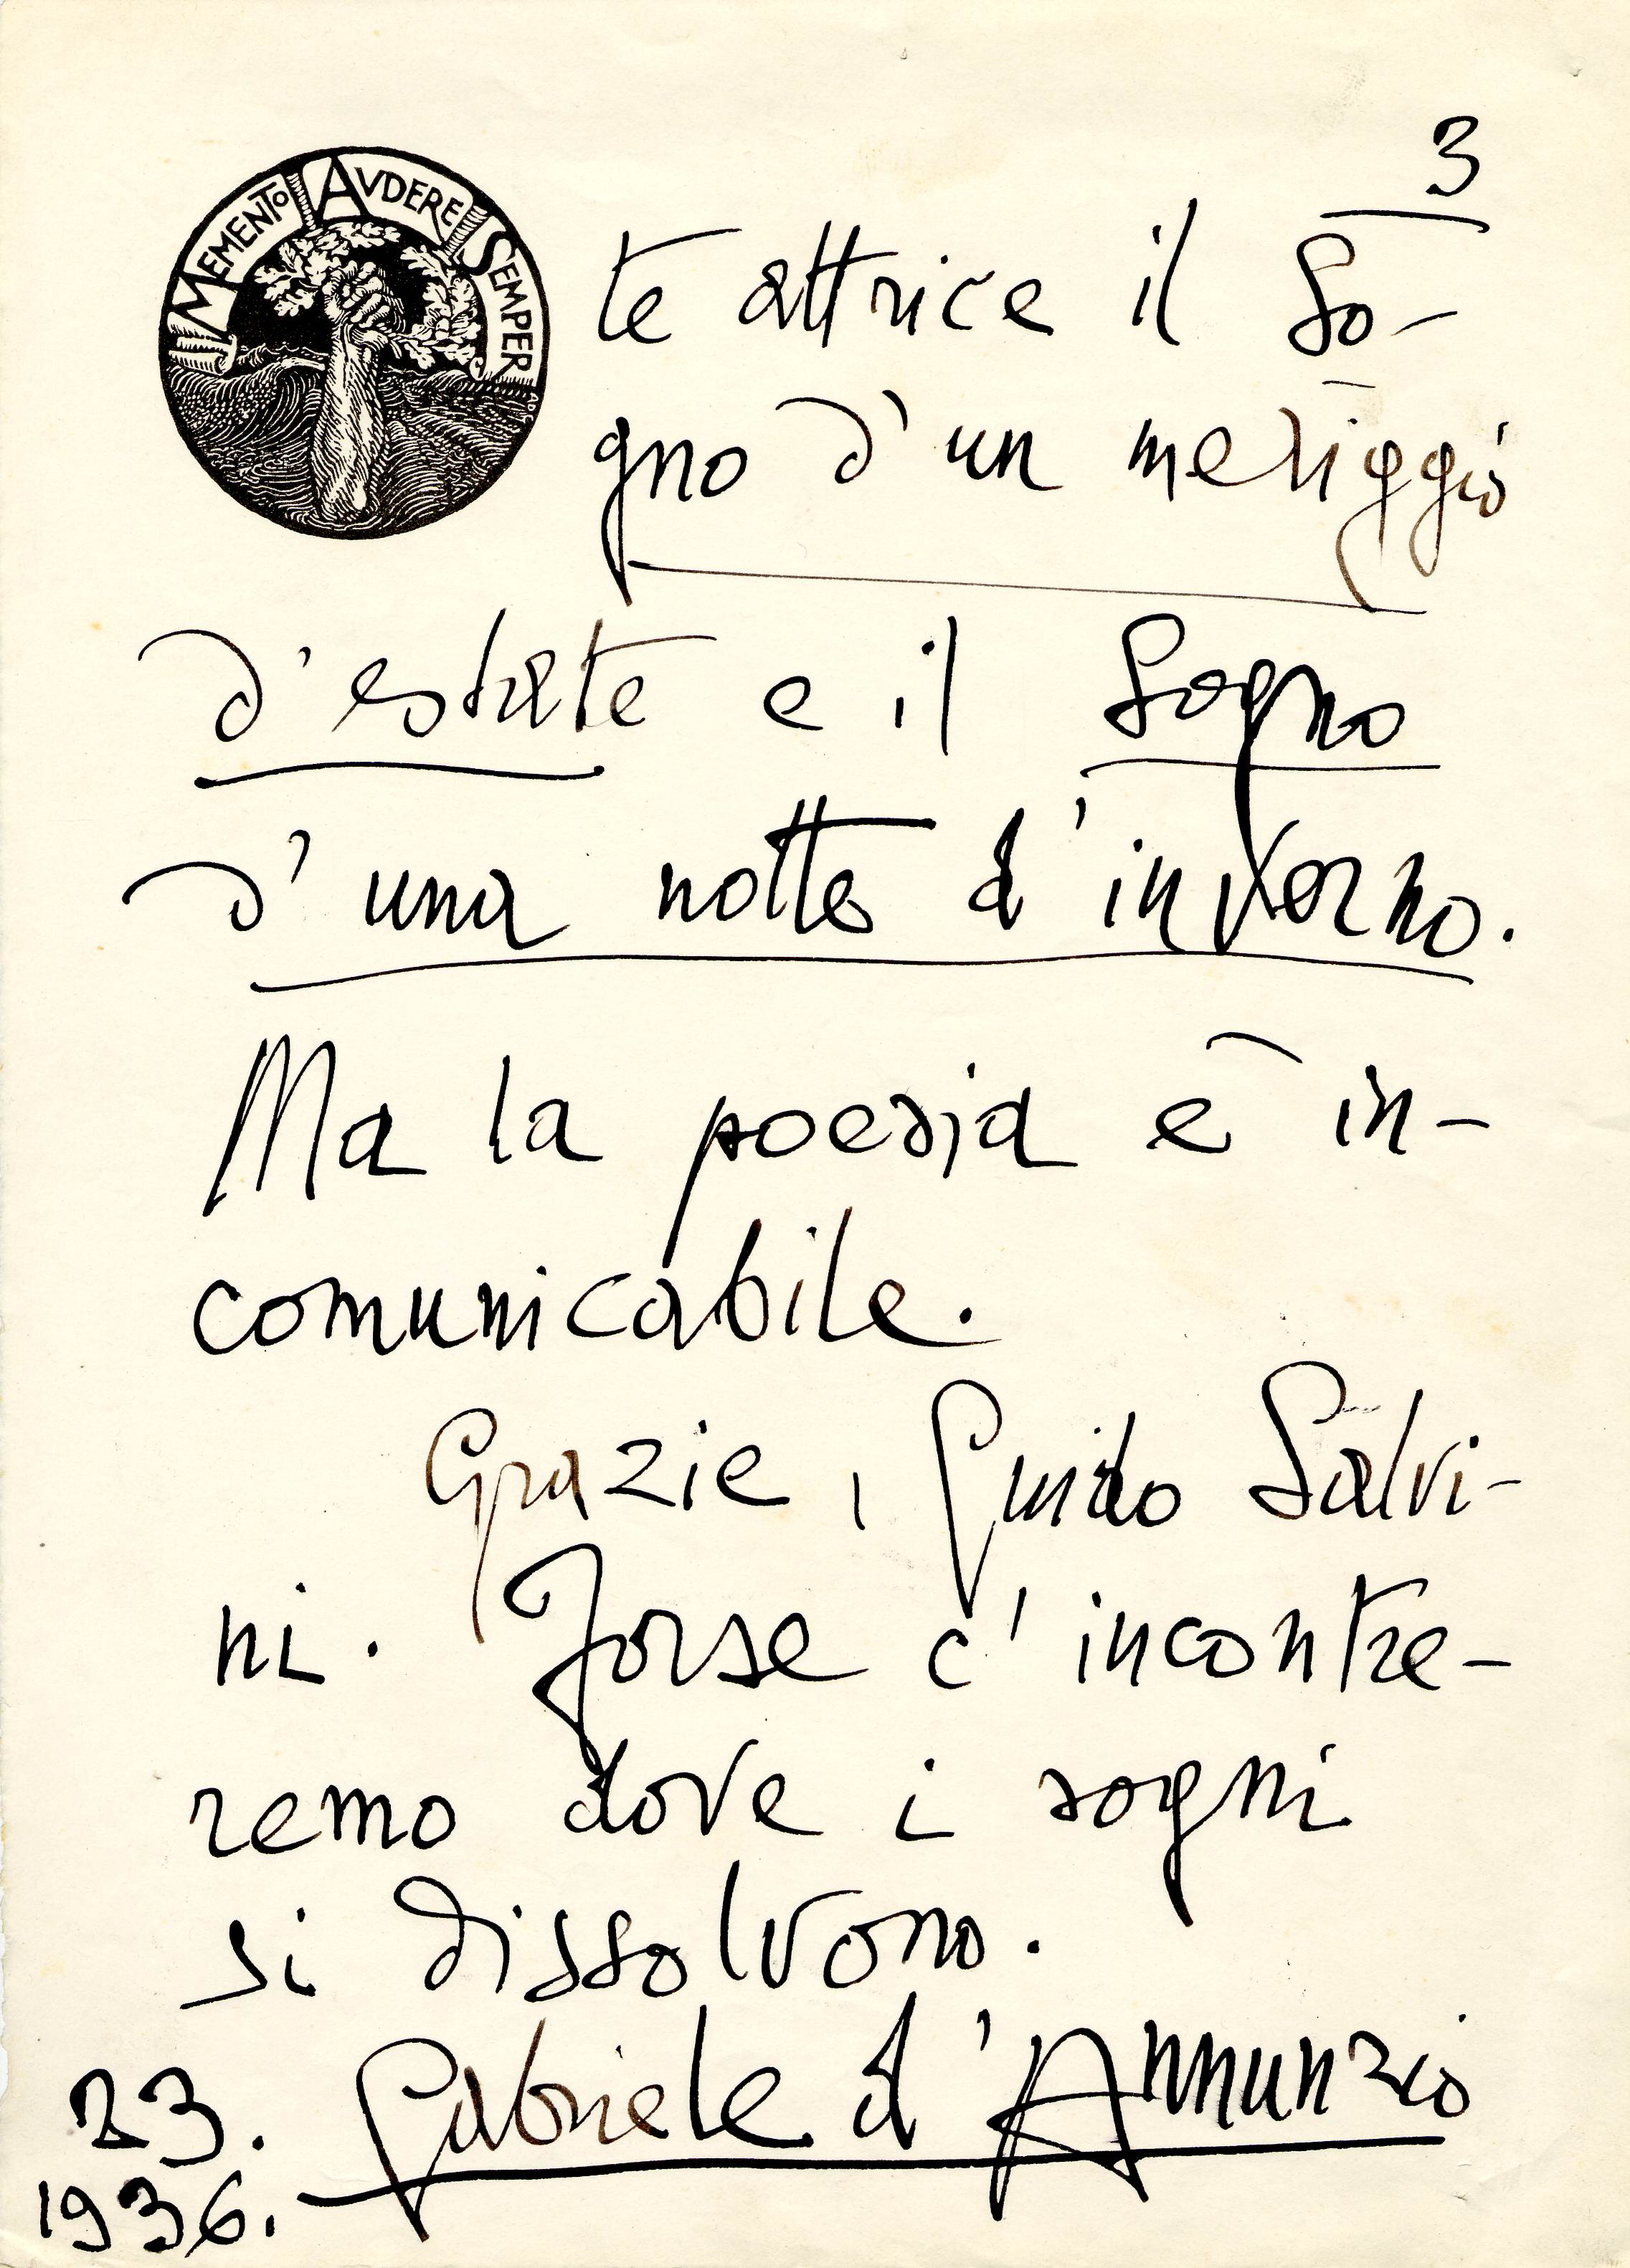 3
MEMENTO AVDERE SEMPER
te attrice il So-
gno d'un meriggio
d'estate e il Sogno
d'una notte d'inverno.
Ma la poesia è in-
comunicabile.
Grazie, Guido Salvi-
ni. Forse c'incontre-
remo dove i sogni
si dissolvono.
23. Gabriele d'Annunzio
1936.